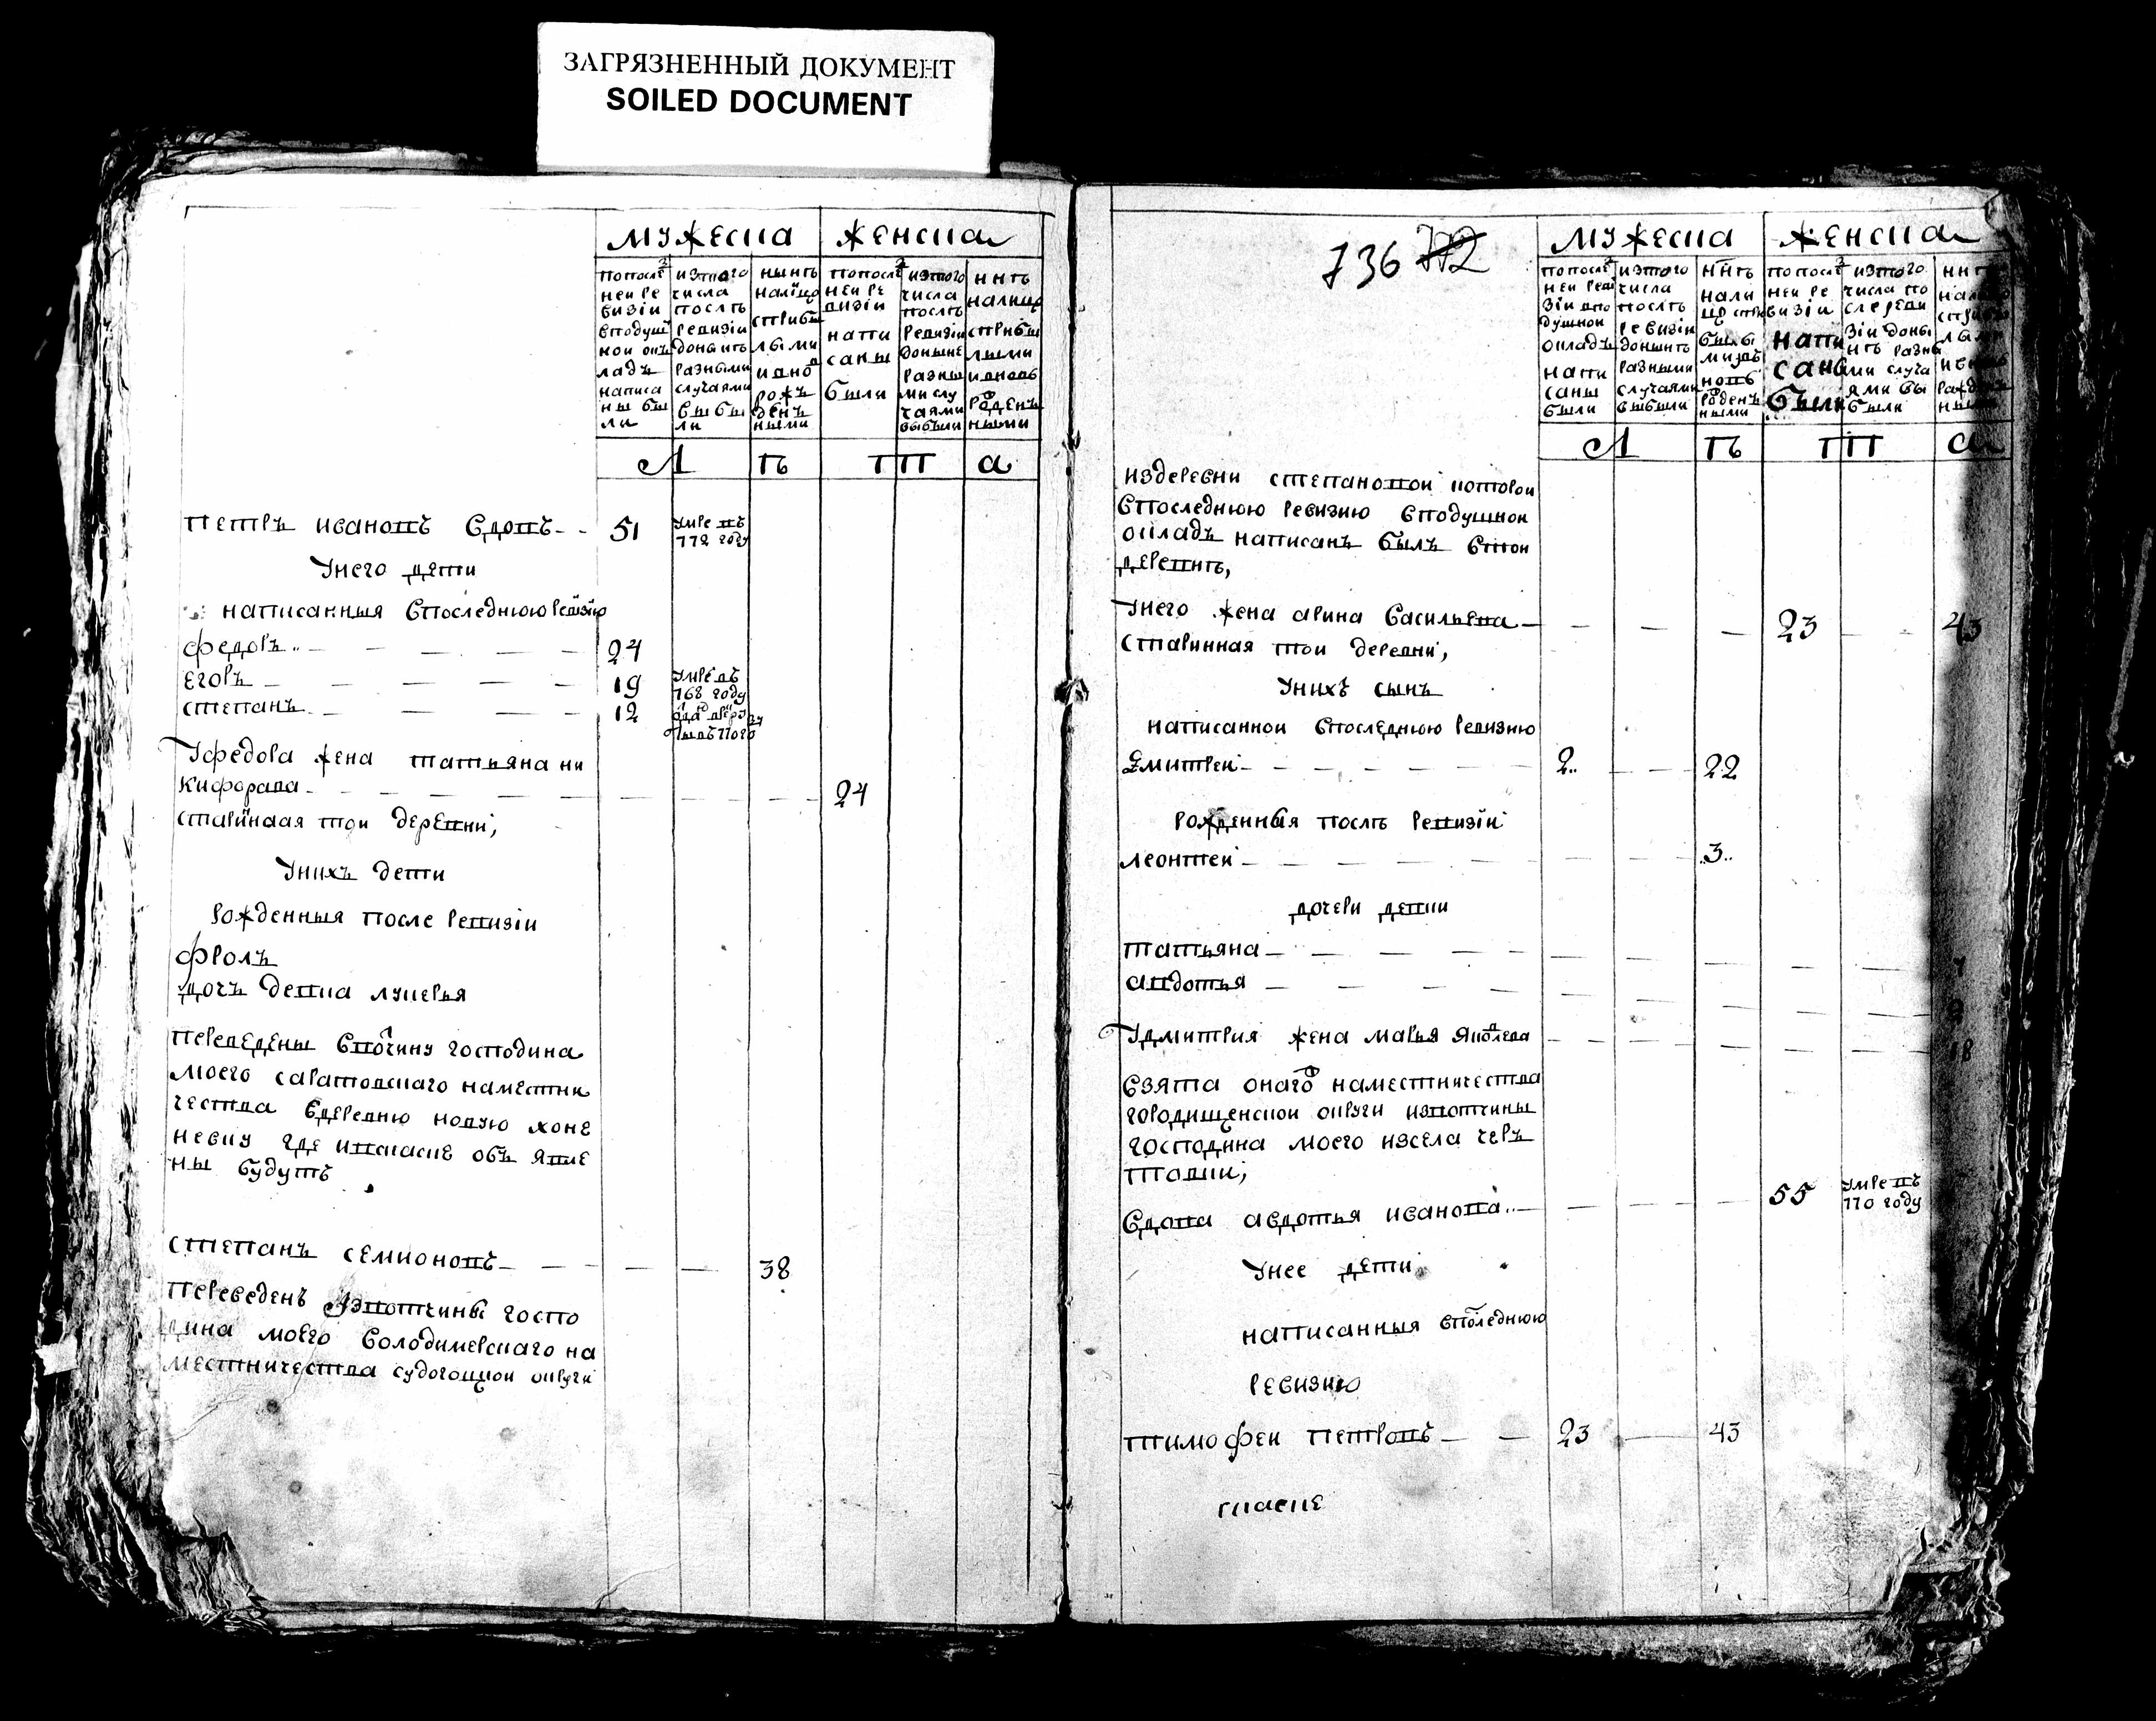 ЗАГРЯЗНЕННЫЙ ДОКУМЕНТ
SOILED DOCUMENT
мужеска женска
попослѣ
ней ре
визіи
вподуш
ной ок
ладъ
написа
ны бы
ли
изтого
числа
послѣ
ревизіи
донынѣ
разными
случаями
выбы
ли
нынѣ
налицо
стрибы
лыми
ивно
рожъ
денъ
ными
попослѣ
ней ре
визіи
напи
саны
были
изтого
числа
послѣ
ревизіи
доныне
разны
мислу
чаями
выбыли
ннѣ
налицо
стрибы
лыми
ивновь
роденъ
ными
Л ѣ т а
Петръ ивановъ вдовъ 51 умре въ 772 году
Унего дети
написанныя впоследнюю ревизию
Федоръ 24
Егоръ 19 умре въ 768 году
степанъ 12
Уфедора жена татьяна ни
кифорава 24
старинная той деревни,
Унихъ дети
рожденныя после ревизіи
Фролъ
дочь девка лукерья
переведены ввочину господина
моего саратовскаго наместни
чества вдеревню новую хоне
невку где ивскаске объ явле
ны будутъ
степанъ семионовъ 38
переведенъ извотчины госпо
дина моего володимерскаго на
местничества судогоцкой округи
736 772
мужеска женска
попослѣ
ней реви
зіи впо
душной
окладъ
напи
саны
были
изтого
числа
послѣ
ревизіи
донынѣ
разными
случаями
выбыли
ннѣ
нали
цо стри
былы
мизвъ
новь
роденъ
ными
попослѣ
ней ре
визіи
напи
саны
были
изтого
числа по
сле реви
зіи доны
нѣ разны
ми случа
ями вы
были
Л ѣ т а
издеревни степановой которой
впоследнюю ревизию вподушной
окладъ написанъ былъ втой
деревнѣ,
Унего жена арина васильева 23 43
старинная той деревни,
Унихъ сынъ
написанной впоследнюю ревизию
Дмитрей 2 22
рожденныя послѣ ревизіи
леонтей 3
дочери девки
татьяна 7
авдотья
Удмитрия жена марья яковлева 18
взята онаго наместничества
городищенской округи извотчины
господина моего изсела черъ
товки,
вдова авдотья иванова 55 умре въ 770 году
Унее дети
написанныя впоследнюю
ревизию
тимофей петровъ 23 43
кскаске